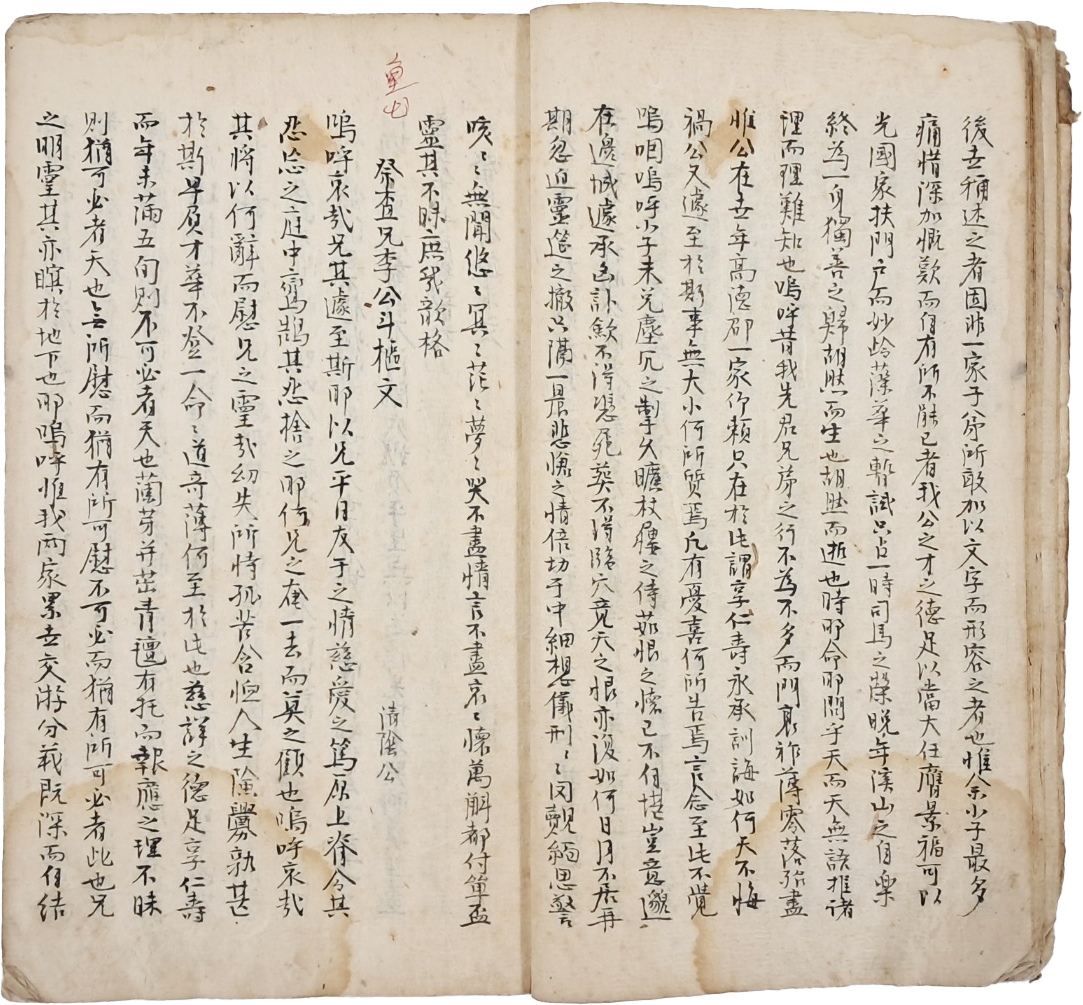 後世稱述之者固非一家子弟所敢加以文字而形容之者也惟余小子最多
痛惜深加慨歎而自有所不能已者我公之才之德足以當大任膺景福可以
光國家扶門戶而妙齡藻華之暫試只占一時司馬之榮晩年溪山之自樂
終爲一身獨善之歸胡然而生也胡然而逝也時耶命耶問乎天而天無語推諸
理而理難知也嗚呼昔我先君兄弟之行不爲不多而門衰祚薄零落殆盡
惟公在世年高德卲一家仰賴只在於此謂享仁壽永承訓誨如何天不悔
禍公又遽至於斯事無大小何所質焉凡有憂喜何所告焉言念至此不覺
嗚咽嗚呼小子未免塵冗之掣久曠杖屨之侍茹恨之懷已不自堪豈意邈
在邊城遽承凶訃歛不得憑屍葬不得臨穴竟天之恨亦復如何日月不居再
期忽迫靈筵之撤只隔一晨悲愴之情倍切于中細想儀刑〻〻罔覿緬思警
咳〻〻無聞悠〻冥〻茫〻夢〻哭不盡情言不盡哀〻懷萬斛都付單盃
靈其不昧庶我歆格
祭査兄李公斗樞文
淸陰公
嗚呼哀哉兄其遽至斯耶以兄平日友于之情慈愛之篤原上脊令其
忍忘之庭中鸞鵠其忍捨之耶何兄之奄一去而莫之顧也嗚呼哀哉
其將以何辭而慰兄之靈哉幼失所恃孤苦含恤人生險釁孰甚
於斯早負才華不登一命〻道奇薄何至於此也慈詳之德足享仁壽
而年未滿五旬則不可必者天也蘭芽幷茁靑氊有托而報應之理不昧
則猶可必者天也無所慰而猶有所可慰不可必而猶有所可必者此也兄
之明靈其亦瞑於地下也耶嗚呼惟我兩家累世交游分義旣深而自結